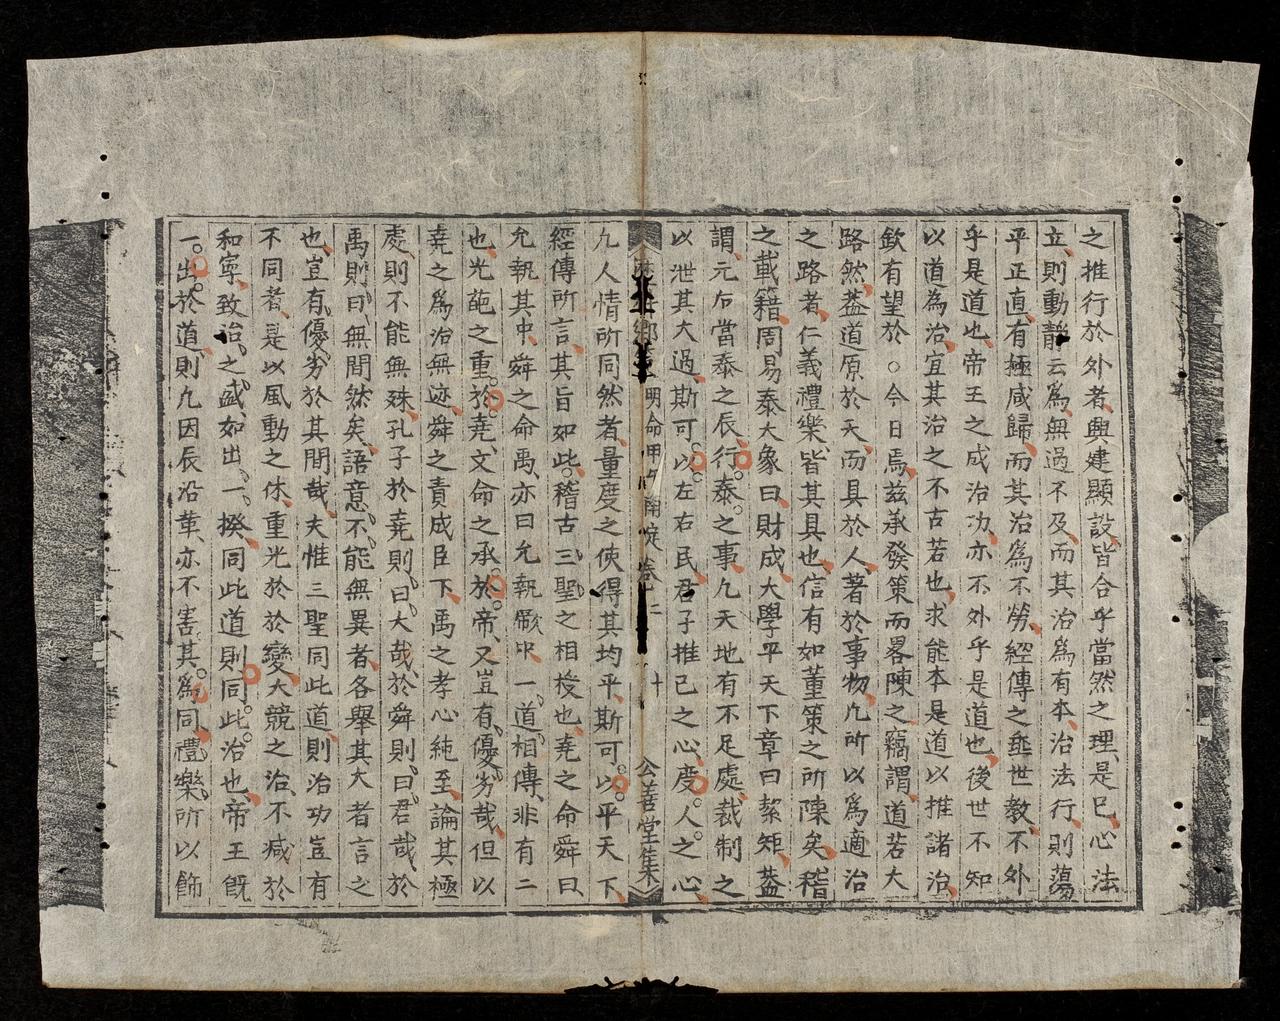 之推行於外者興建顯設皆合乎當然之理是已心法
立則動靜云為無過不及而其治為有本治法行則蕩
平正直有極咸歸而其治為不勞經傳之垂世教不外
乎是道也帝王之成治功亦不外乎是道也後世不知
以道為治宜其治之不古若也求能本是道以推諸治
欽有望於○今日焉茲承發策而畧陳之竊謂道若大
路然蓋道原於天而具於人著於事物凢所以為適治
之路者仁義禮樂皆其具也信有如董策之所陳矣稽
之載籍周易泰大象曰財成大學平天下章曰絜矩蓋
謂元后當泰之辰行泰之事凢天地有不足處裁制之
以泄其大過斯可以左右民君子推己之心度人之心
鄉 明命 卷二 十 公善堂集
凢人情所同然者量度之使得其均平斯可以平天下
經傳所言其旨如此稽古三聖之相授也堯之命舜曰
允執其中舜之命禹亦曰允執厥中一道相傳非有二
也光葩之重於堯文命之承於帝又豈有優劣哉但以
堯之為治無迹舜之責成臣下禹之孝心純至論其極
處則不能無殊孔子於堯則曰大哉於舜則曰君哉於
禹則曰無間然矣語意不能無異者各舉其大者言之
也豈有優劣於其間哉夫惟三聖同此道則治功豈有
不同者是以風動之休重光於於變大競之治不减於
和寧致治之盛如出一揆同此道則同此治也帝王既
一出於道則凢因辰沿革亦不害其為同禮樂所以飾